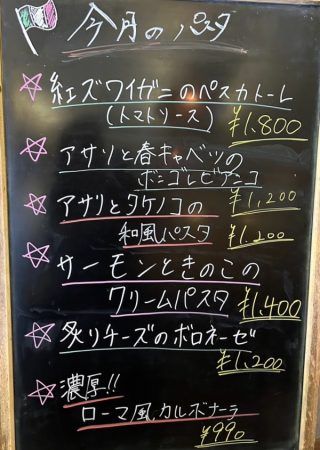 今月のパスタ
紅ズワイガニのペスカトーレ
(トマトソース) ¥1.800
アサリと春キャベツの
ボンゴレビアンコ
¥1,200
アサリとタケノコの
和風パスタ ¥1.200
サーモンときのこの
クリームパスタ ¥1,400
炙りチーズのボロネーゼ
¥1,200
濃厚!!
ローマ風カルボナーラ
¥990